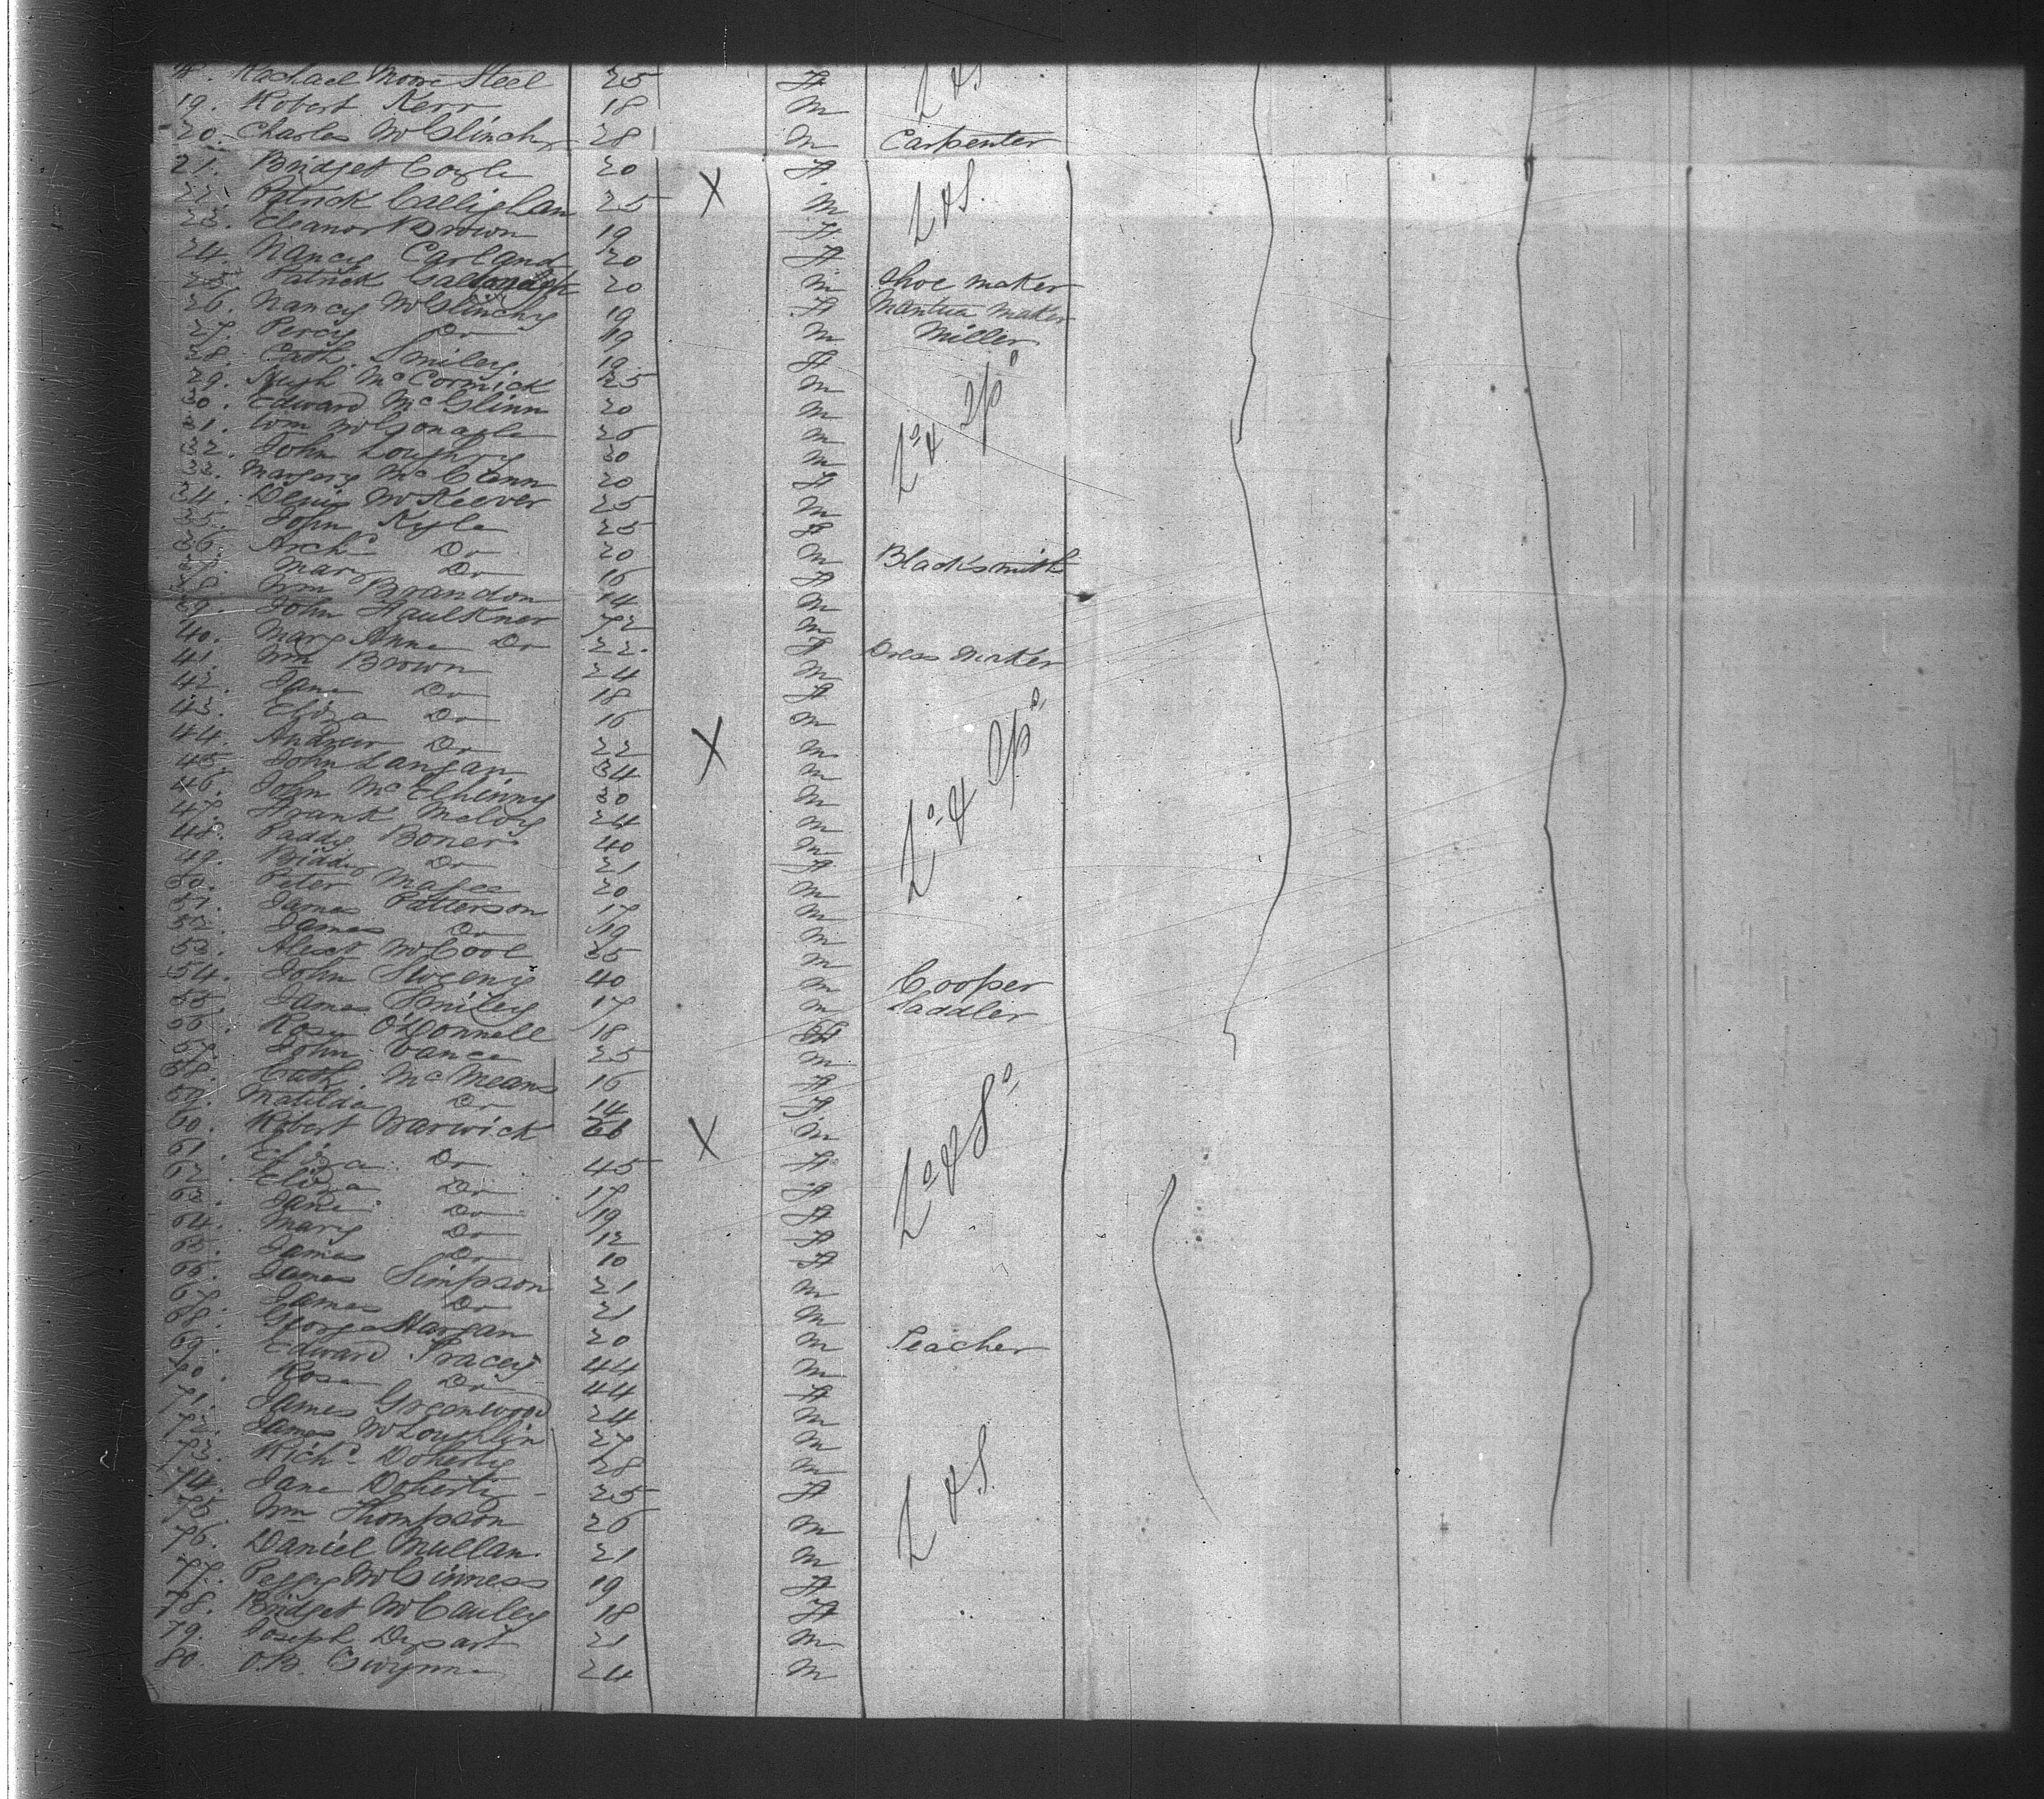 18. Rachael Moore Steel 25 F
19. Robert Kerr 18 M L & S
20. Charles McGlinchy 28 M Carpenter
21. Bridget Coyle 20 F
22. Patrick Callighan 25 X M L & S.
23. Eleanor Brown 19 F
24. Nancy Carland 20 F
25. Patrick 20 M Shoe maker
26. Nancy McGlinchy 19 F Mantua Maker
27. Percy Do 19 M Miller
28. Cath. Smiley. 19 F
29. Hugh McCormick 25 M
30. Edward McGlinn 20 M
31. Wm McGonagle 26 M
32. John Loughry 30 M
33. Margery McGlenn 20 F
34. Denis McKeever 25 M
35. John Kyle 25 F
36. Archd Do 20 M Blacksmith
37. Mary Do 16 F
38. Wm Brandon 14 M
39. John Faulkner 72 M
40. Mary Anne Do 22. F Dress Maker
41. Wm Brown 24 M
42. Jane Do 18 F
43. Eliza Do 16 M
44. Andrew Do 22 X M
45. John Langan 34 M
46. John McElhinny 30 M
47. Frank Meloy 24 M
48. Paddy Boner 40 M
49. Biddy Do 21 F
50. Peter Magee 20 M
51. James Patterson 17 M
52. James Do 19 M
53. Alext McCool 35 M
54. John Sweeny 40 M Cooper
55. James Smiley 17 M Saddler
56. Rosy O'Donnell 18 F
57. John Vance 25 M
58. Cath. McMeans 16 F
59. Matilda Do 14 F
60. Robert Warwick X M
61. Eliza Do 45 F
62. Eliza Do 17 F
63. Jane Do 19 F
64. Mary Do 12 F
65. James Do 10 F
66. James Simpson 21 M
67. James Do 21 M
68. George Hargan 20 M Teacher
69. Edward Tracey 44 M
70. Rose Do 44 F
71. James Greenwood 24 M
72. James McLoughlin 27 M
73. Richd Doherty 28 M
74. Jane Doherty 25 F L & S.
75. Wm Thompson 26 M
76. Daniel Mullan. 21 M
77. Peggy McGinness 19 F
78. Bridget McCauley 18 F
79. Joseph Dysart 21 M
80. O.B. Gwynne 24 M